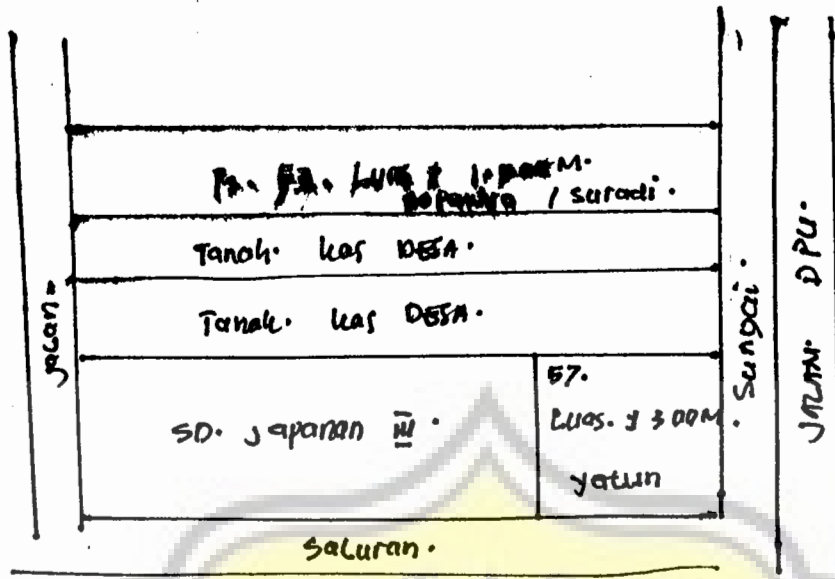 Luas
/ suradi.
Tanah. kas DESA.
Tanah. kas DESA.
SD. Japanan III.
57.
Luas. ± 300M.
yatun
Saluran.
jalan
Sungai.
JALAN DPU.